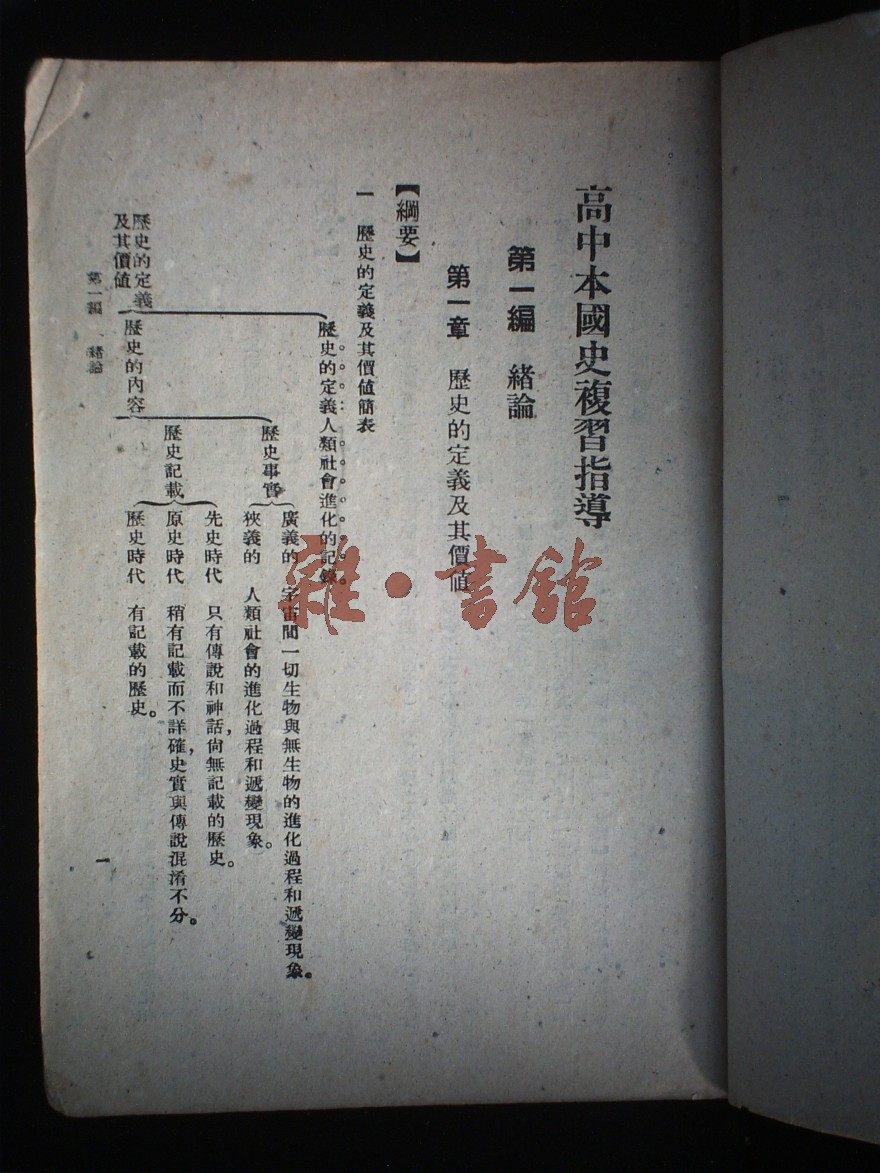 高中本國史複習指導
第一編　緒論
第一章　歷史的定義及其價値
【綱要】
一　歷史的定義及其價値簡表
歷史的定義：人類社會進化的記錄。
廣義的　宇宙間一切生物與無生物的進化過程和遞變現象。
歷史事實
狹義的　人類社會的進化過程和遞變現象。
先史時代　只有傳說和神話，尙無記載的歷史。
歷史記載
原史時代　稍有記載而不詳確，史實與傳說混淆不分。
歷史時代　有記載的歷史。
歷史的內容
歷史的定義
及其價値
第一編　緒論
一
雜·書舘